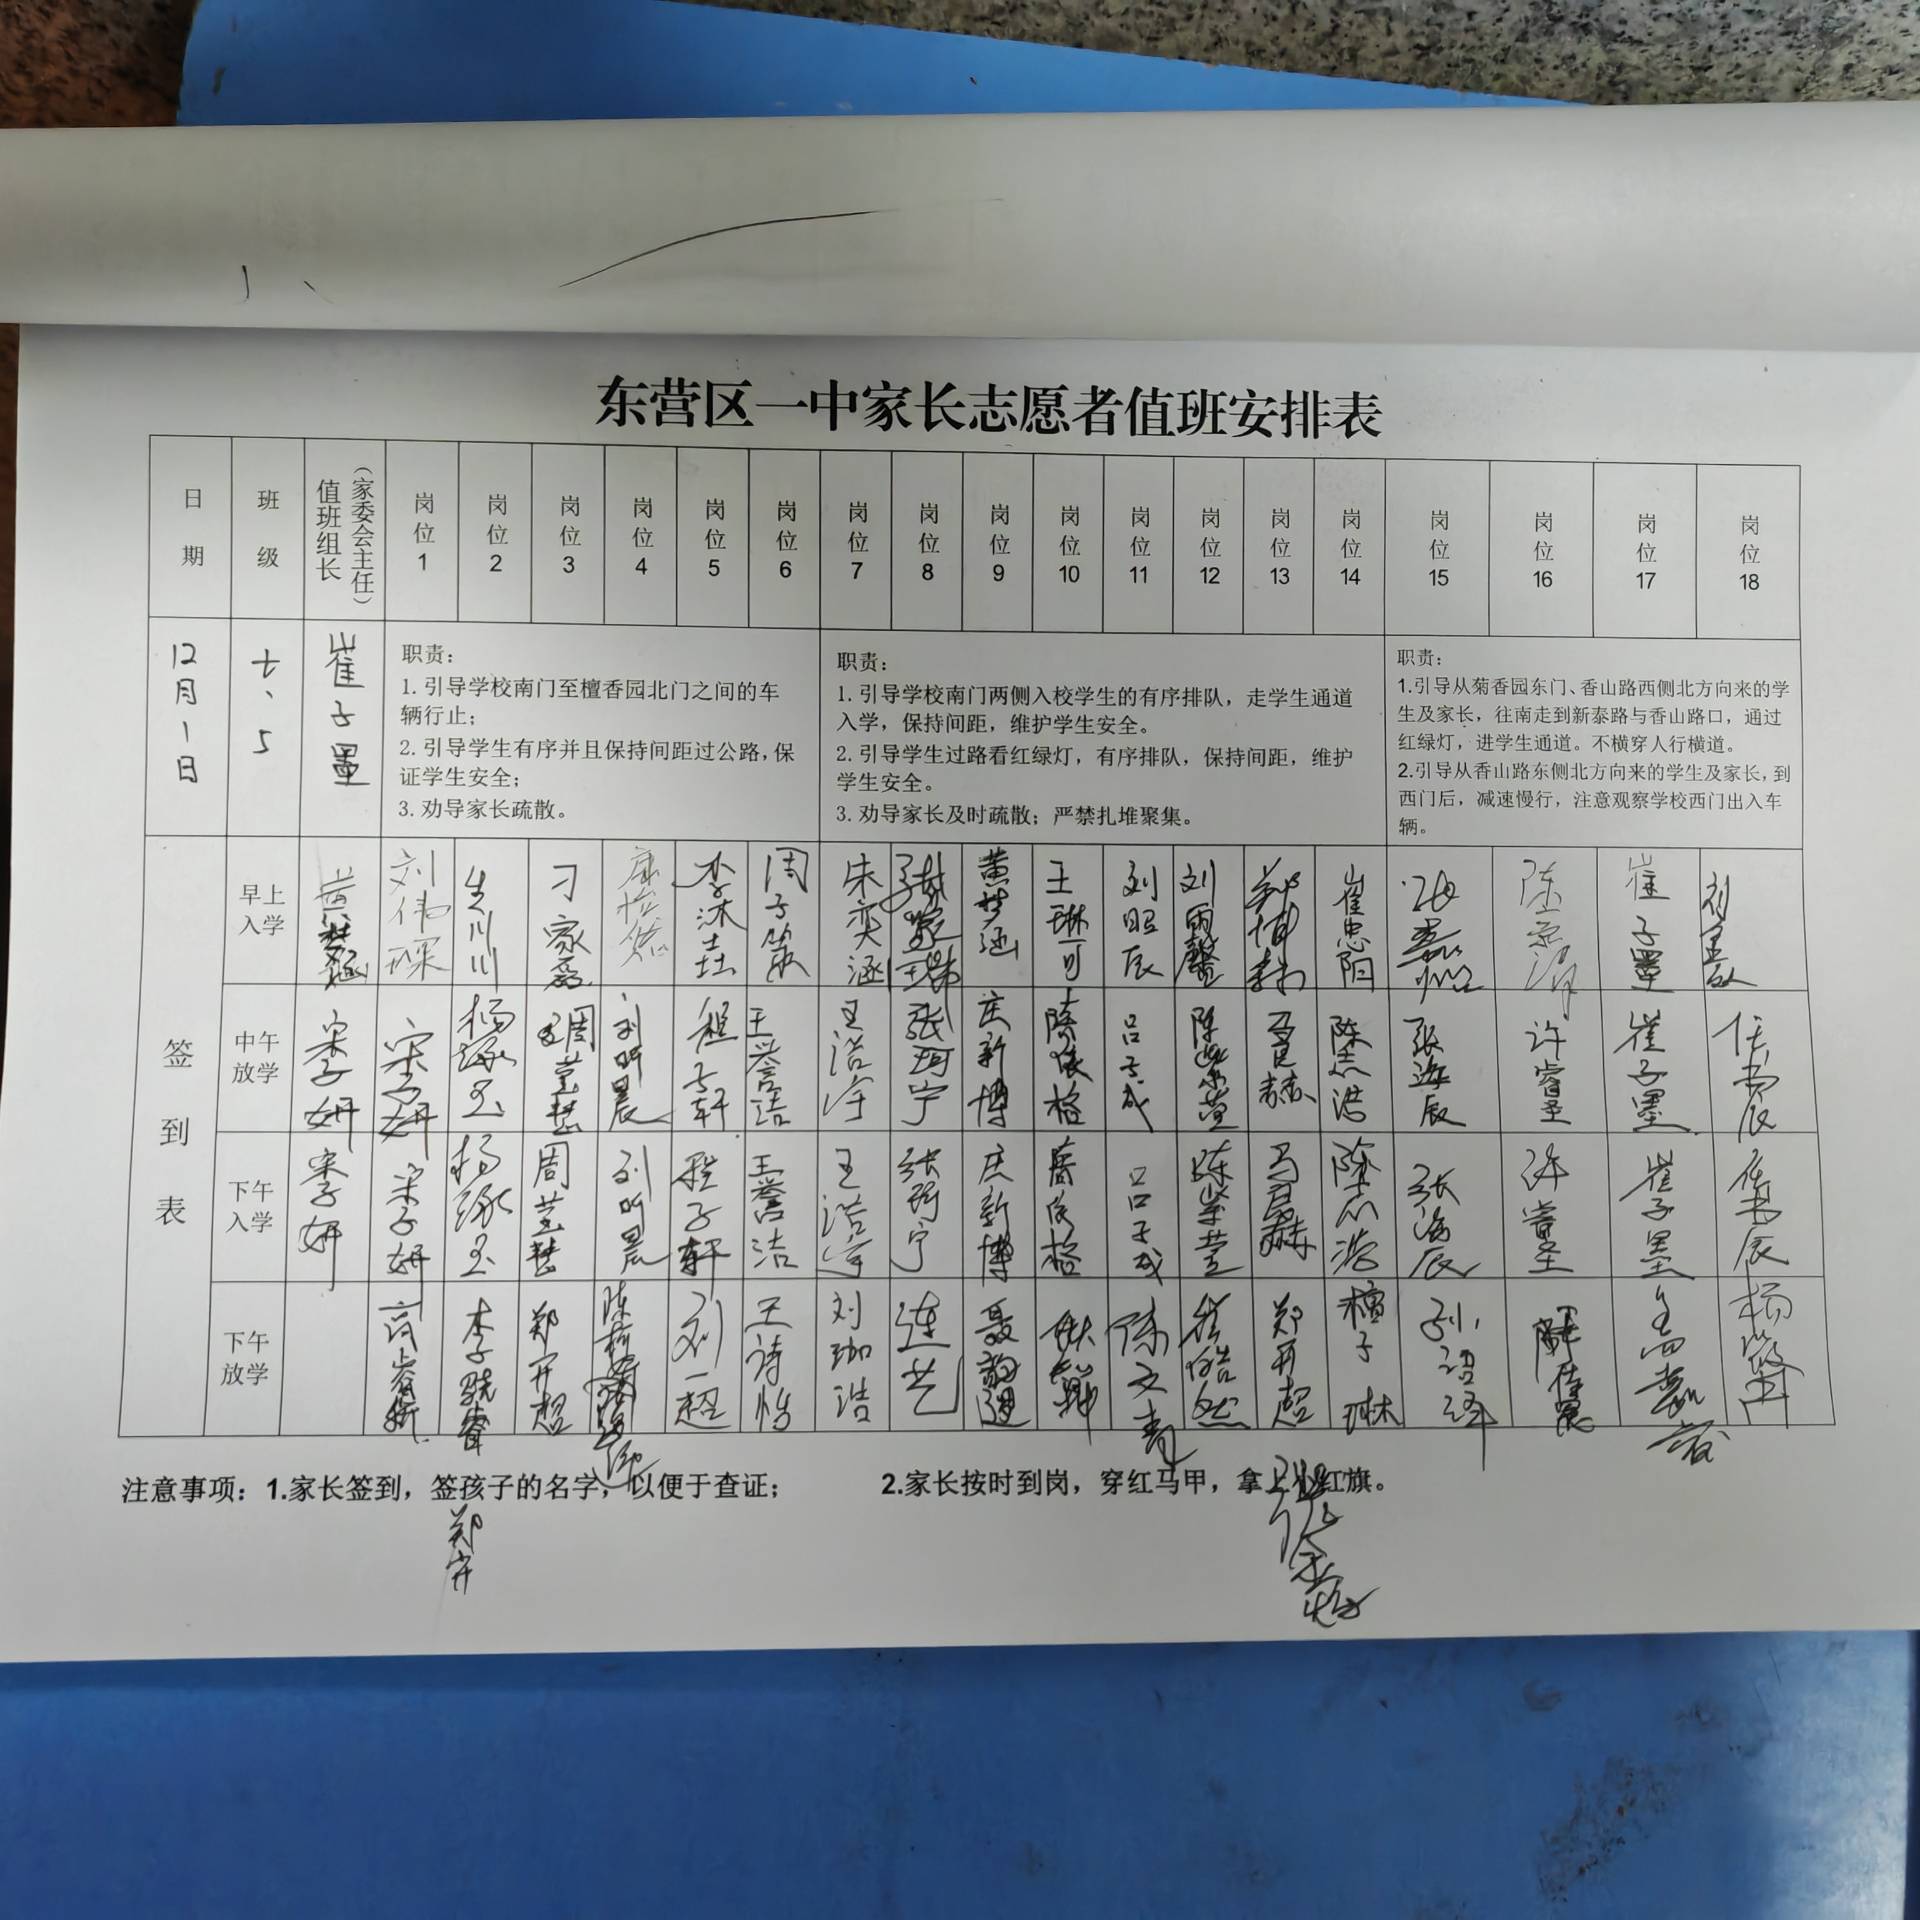 东营区一中家长志愿者值班安排表
日期 班级 值班组长（家委会主任） 岗位1 岗位2 岗位3 岗位4 岗位5 岗位6 岗位7 岗位8 岗位9 岗位10 岗位11 岗位12 岗位13 岗位14 岗位15 岗位16 岗位17 岗位18
12月1日 七、5 崔子墨
职责：
1. 引导学校南门至檀香园北门之间的车
辆行止；
2. 引导学生有序并且保持间距过公路，保
证学生安全；
3. 劝导家长疏散。
职责：
1. 引导学校南门两侧入校学生的有序排队，走学生通道
入学，保持间距，维护学生安全。
2. 引导学生过路看红绿灯，有序排队，保持间距，维护
学生安全。
3. 劝导家长及时疏散；严禁扎堆聚集。
职责：
1.引导从菊香园东门、香山路西侧北方向来的学
生及家长，往南走到新泰路与香山路口，通过
红绿灯，进学生通道。不横穿人行横道。
2.引导从香山路东侧北方向来的学生及家长，到
西门后，减速慢行，注意观察学校西门出入车
辆。
签到表
早上入学 刘伟琛 刁家磊 李沐垚 周子筑 朱奕涵 黄梦涵 王琳可 刘昭辰 刘雨馨 崔忠阳 崔子墨
中午放学 宋子妍 宋子妍 杨琢玉 周芸慧 刘昕晨 程子轩 王誉洁 王浩宇 张珂宁 庆新博 吕子成 陈紫萱 陈志浩 张海辰 许睿 崔子墨 任书辰
下午入学 宋子妍 宋子妍 杨琢玉 周芸慧 刘昕晨 程子轩 王誉洁 王浩宇 张珂宁 庆新博 吕子成 陈紫萱 陈志浩 张海辰 崔子墨 任书辰
下午放学 郑开超 刘一超 王诗恺 刘珈浩 连艺 陈文青 崔皓然 郑开超 檀子琳
注意事项：1.家长签到，签孩子的名字，以便于查证； 2.家长按时到岗，穿红马甲，拿上小红旗。
郑开